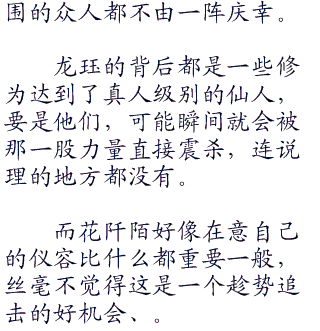 围的众人都不由一阵庆幸。
龙珏的背后都是一些修
为达到了真人级别的仙人，
要是他们，可能瞬间就会被
那一股力量直接震杀，连说
理的地方都没有。
而花阡陌好像在意自己
的仪容比什么都重要一般，
丝毫不觉得这是一个趁势追
击的好机会、。